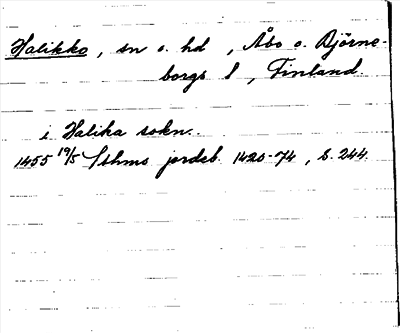 Halikko, sn o. hd, Åbo o. Björne-
borgs l, Finland
i Halika sokn.
1455 19/5 Sthms jordeb. 1420-74, s. 244.